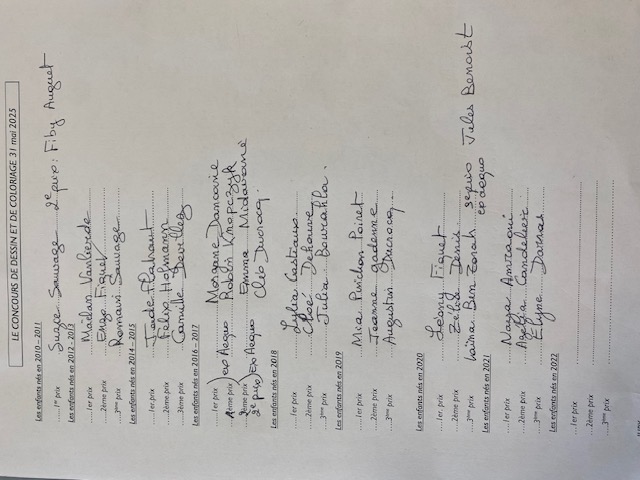 LE CONCOURS DE DESSIN ET DE COLORIAGE 31 mai 2025
Les enfants nés en 2010 – 2011
......1er prix Suage Sauvage 2e prix : Fiby Auguet
Les enfants nés en 2012 - 2013
.....1er prix Madlin Vanlierde
.....2ème prix Enzo Fiquet
.....3ème prix Romain Sauvage
Les enfants nés en 2014 - 2015
1er prix Jade Flahaut
.....2ème prix Felix Hofmann
.....3ème prix Camille Devillez
Les enfants nés en 2016 – 2017
.....1er prix ) ex Aequo Morgane Dancoine
1ème prix Robin Knopczyk
2ème prix Ex Aequo Emma
2e prix Cléo Ducrocq.
Les enfants nés en 2018
.....1er prix Lylia Castiaux
.....2ème prix Chloé Dehouve
.....3ème prix Julia Bourahla.
Les enfants nés en 2019
.....1er prix Mica Pinchon Poiret
.....2ème prix Jeanne Gadenne
.....3ème prix Augustin Ducrocq
Les enfants nés en 2020
.....1er prix Léony Fiquet
.....2ème prix Zélie Denis
.....3ème prix Laïna Ben Zorah 3e prix ex aequo Jules Benoist
Les enfants nés en 2021
.....1er prix Naya
.....2ème prix Azélia Candelier
.....3ème prix Elyne Darras
Les enfants nés en 2022
.....1er prix
.....2ème prix
.....3ème prix